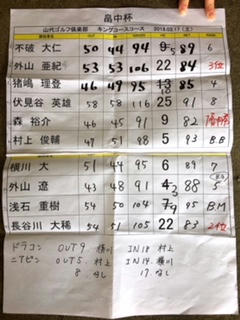 畠中杯
山代ゴルフ倶楽部 キングコースコース 2018.03.17 (土)
不破 大仁 50 44 94 5 89 6
外山 亜紀 53 53 106 22 84 3位
猪嶋 理登 46 49 95 85 4
伏見谷 英雄 58 58 116 25 91 8
森 裕介 46 45 91 9 82 優勝
村上 俊輔 47 51 98 5 93 B.B
横川 大 51 44 95 6 89 7
外山 遼 43 48 91 3 88 5
浅石 重樹 54 50 104 9 95 B.M
長谷川 大稀 54 51 105 22 83 2位
ドラコン OUT9. 横川 IN18 村上
ニアピン OUT5. 村上 IN14. 横川
8. なし 17. なし